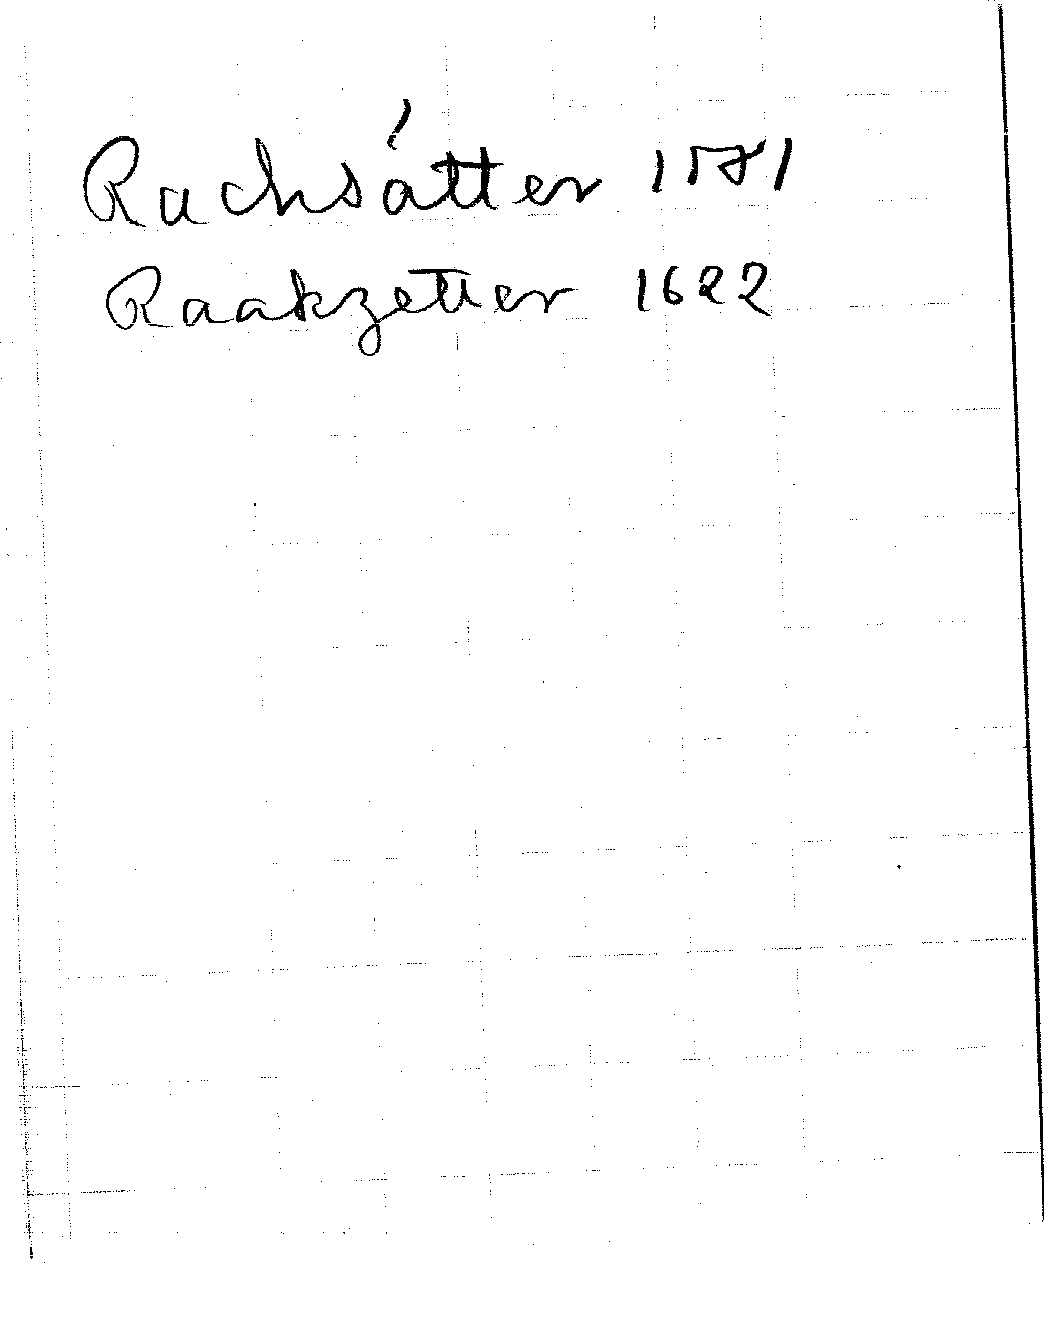 Rachsátter 1571
Raakzetter 1622